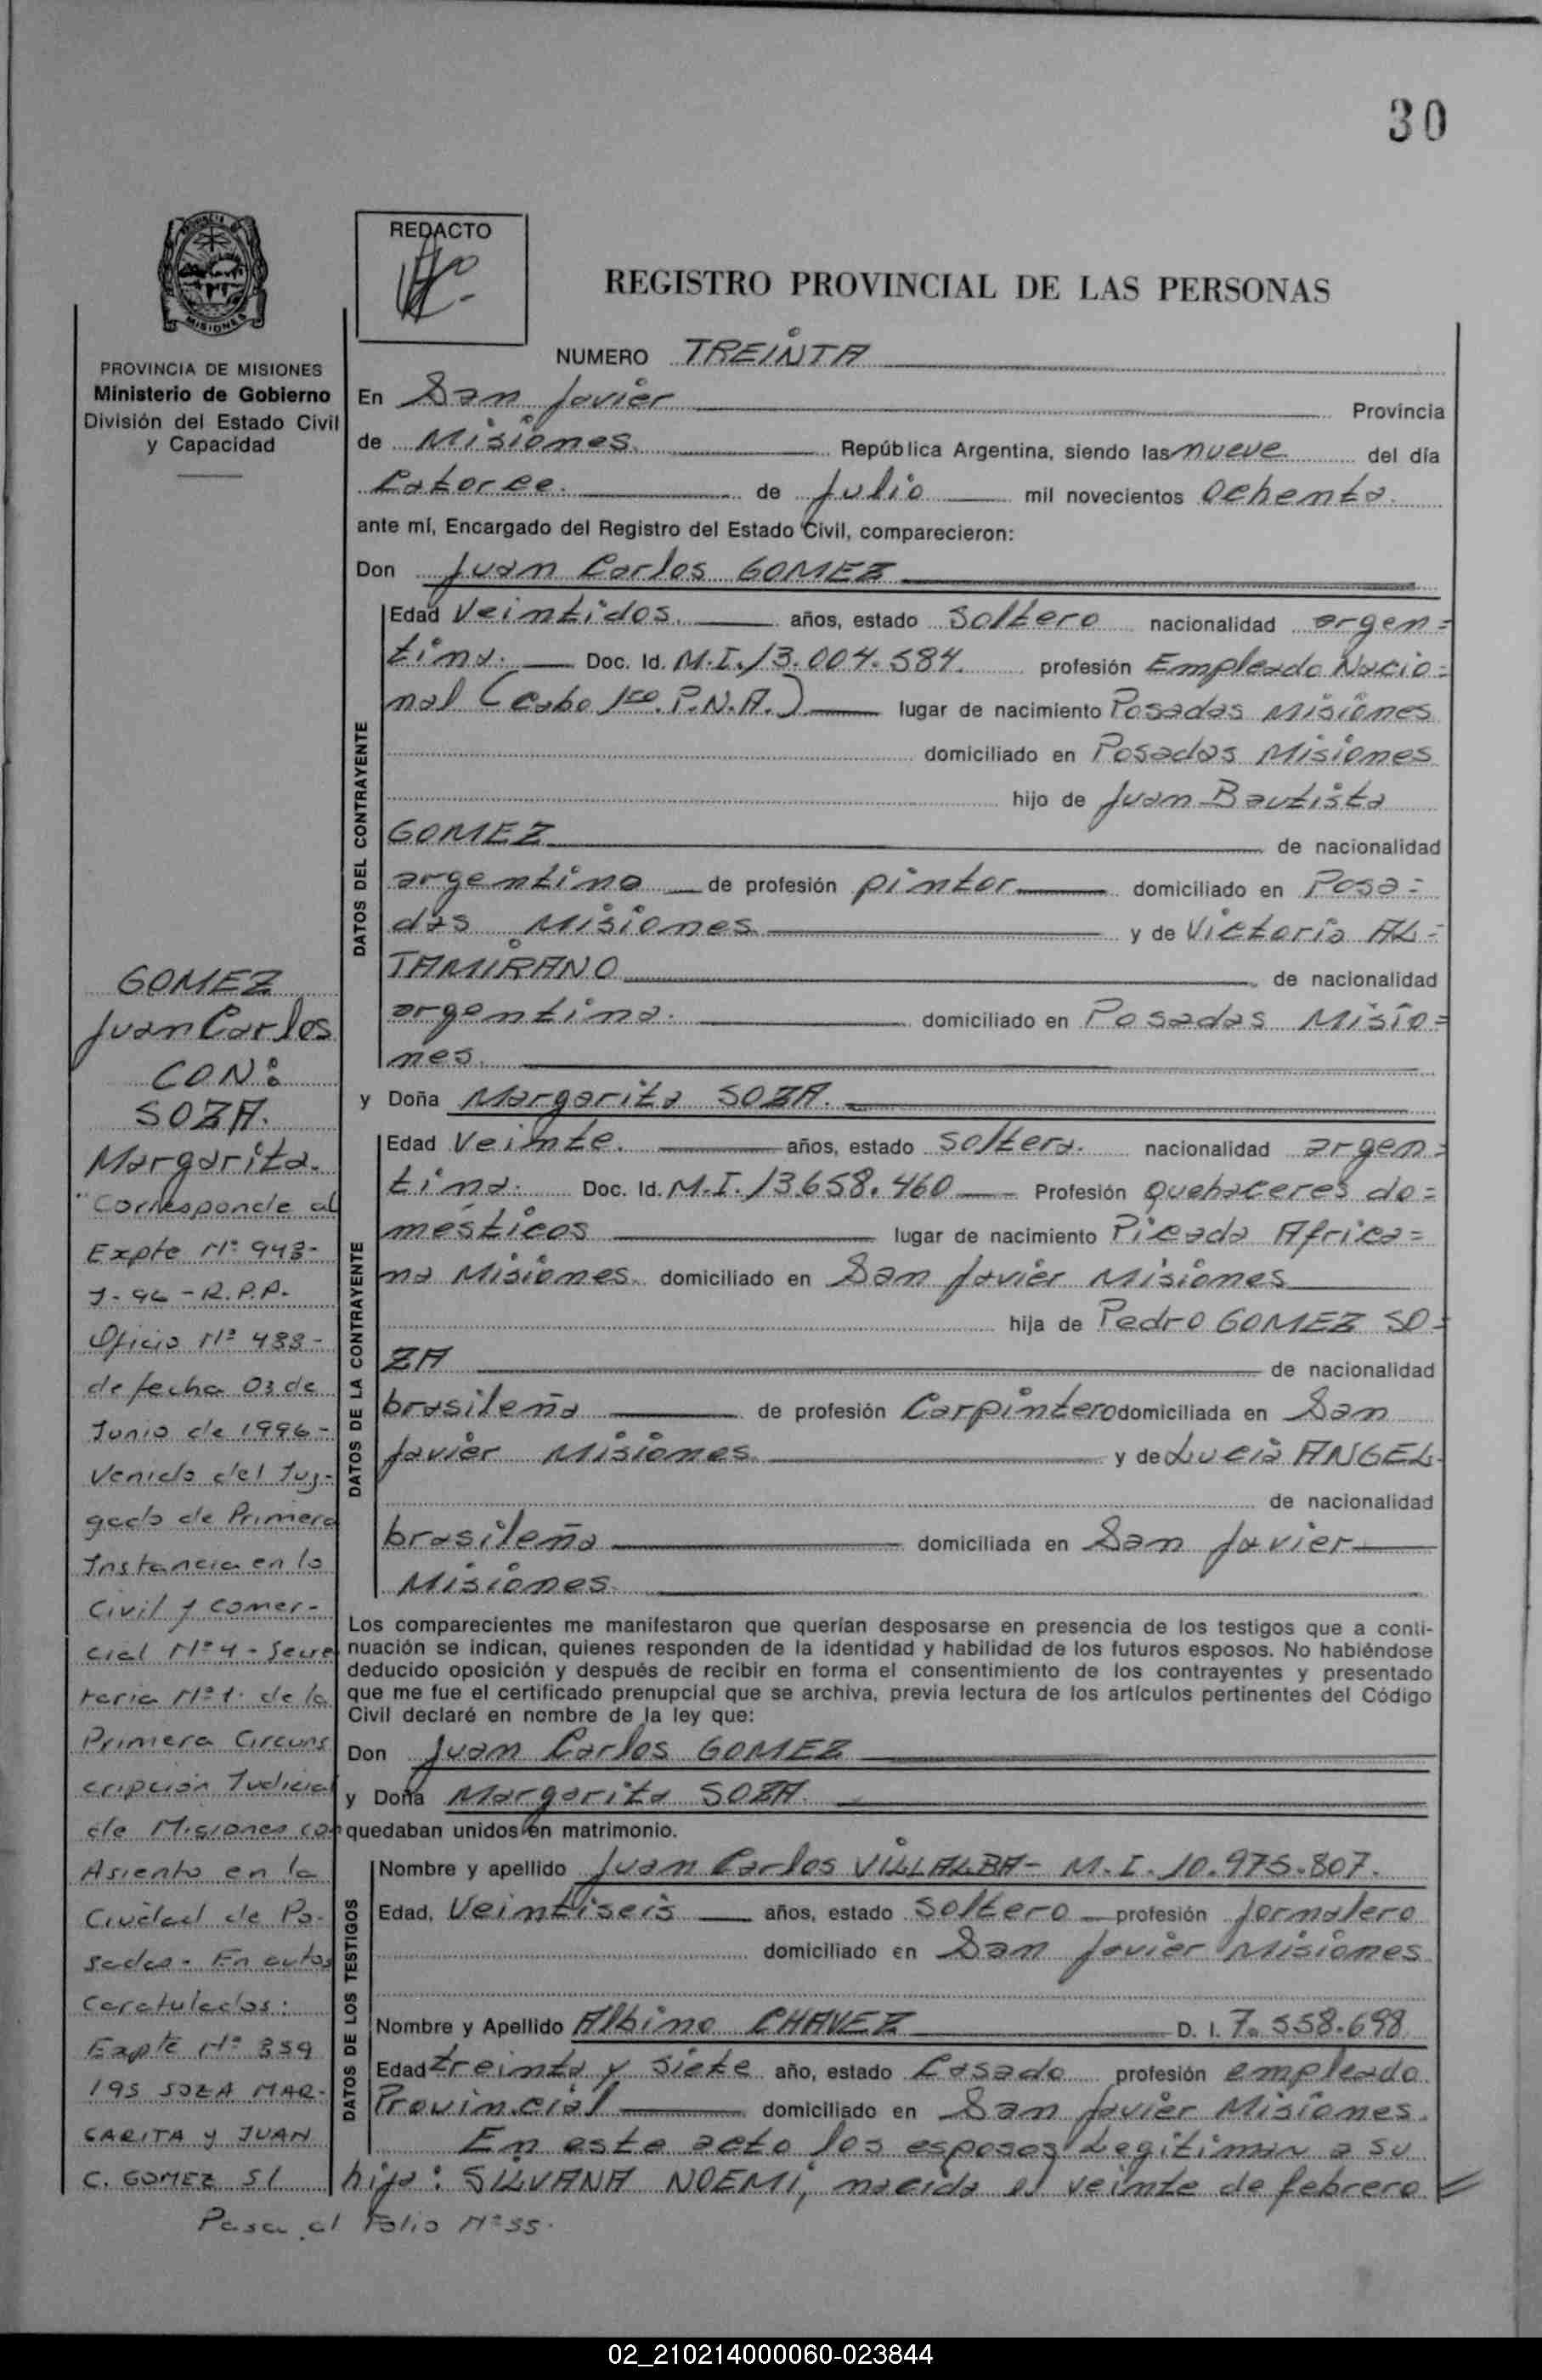 30
REDACTO
REGISTRO PROVINCIAL DE LAS PERSONAS
MISIONES
PROVINCIA DE MISIONES
Ministerio de Gobierno
División del Estado Civil
y Capacidad
NUMERO TREINTA
En San Javier Provincia
de Misiones República Argentina, siendo las nueve del día
Catorce. de Julio mil novecientos Ochenta.
ante mí, Encargado del Registro del Estado Civil, comparecieron:
Don Juan Carlos GOMEZ
DATOS DEL CONTRAYENTE
Edad Veintidos. años, estado Soltero nacionalidad argen=
tina. Doc. Id. M.I. 13.004.584. profesión Empleado Nacio=
nal (Cabo 1ro. P.N.A.) lugar de nacimiento Posadas Misiones
domiciliado en Posadas Misiones
hijo de Juan Bautista
GOMEZ de nacionalidad
argentino de profesión pintor domiciliado en Posa=
das Misiones y de Victoria AL=
TAMIRANO de nacionalidad
argentina. domiciliado en Posadas Misio=
nes.
y Doña Margarita SOZA.
DATOS DE LA CONTRAYENTE
Edad Veinte. años, estado Soltera. nacionalidad argen=
tina. Doc. Id. M.I. 13.658.460 Profesión Quehaceres do=
mésticos lugar de nacimiento Picada Africa=
na Misiones. domiciliado en San Javier Misiones
hija de Pedro GOMEZ SO=
ZA de nacionalidad
brasileña de profesión Carpintero domiciliada en San
Javier Misiones y de Lucia ANGEL.
de nacionalidad
brasileña domiciliada en San Javier
Misiones.
Los comparecientes me manifestaron que querían desposarse en presencia de los testigos que a conti-
nuación se indican, quienes responden de la identidad y habilidad de los futuros esposos. No habiéndose
deducido oposición y después de recibir en forma el consentimiento de los contrayentes y presentado
que me fue el certificado prenupcial que se archiva, previa lectura de los artículos pertinentes del Código
Civil declaré en nombre de la ley que:
Don Juan Carlos GOMEZ
y Doña Margarita SOZA.
quedaban unidos en matrimonio.
DATOS DE LOS TESTIGOS
Nombre y apellido Juan Carlos VILLALBA- M.I. 10.975.807.
Edad, Veintiseis años, estado Soltero profesión Jornalero
domiciliado en San Javier Misiones
Nombre y Apellido Albino CHAVEZ D. I. 7.558.698
Edad treinta y siete año, estado Casado profesión empleado
Provincial domiciliado en San Javier Misiones.
En este acto los esposos Legitiman a su
hija: SILVANA NOEMI, nacida el veinte de febrero
GOMEZ
Juan Carlos
CON:
SOZA.
Margarita.
"Corresponde al
Expte Nº 943-
J-96-R.P.P.
Oficio Nº 433-
de fecha 03 de
Junio de 1996-
Venido del Juz-
gado de Primera
Instancia en lo
Civil y Comer-
cial Nº 4 - Secre
taria Nº 1. de la
Primera Circuns
cripción Judicial
de Misiones con
Asiento en la
Ciudad de Po-
sadas- En autos
Caratulados:
Expte Nº 359
195 SOZA MAR-
GARITA y JUAN
C. GOMEZ S/
Pasa al Folio Nº 55.
02_210214000060-023844